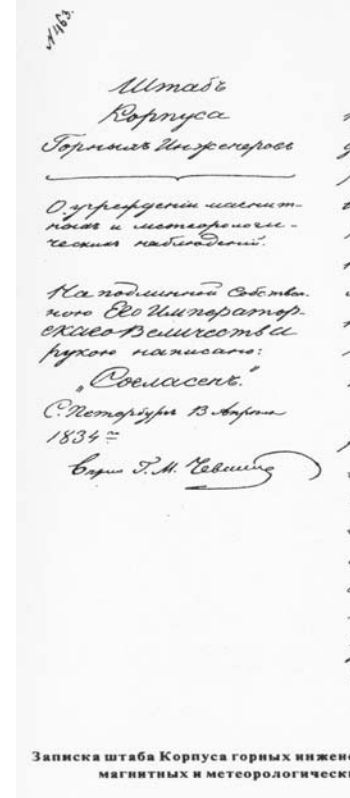 №463.
Штабъ
Корпуса
Горныхъ Инженеровъ
О учрежденіи магнит-
ныхъ и метеорологи-
ческихъ наблюденій.
На подлинной Собствен-
ною Его Император-
скаго Величества
рукою написано:
„Согласенъ."
С. Петербургъ 13 Апрѣля
1834 го
Г. М. Чевкинъ
Записка штаба Корпуса горных инжене
магнитных и метеорологическ